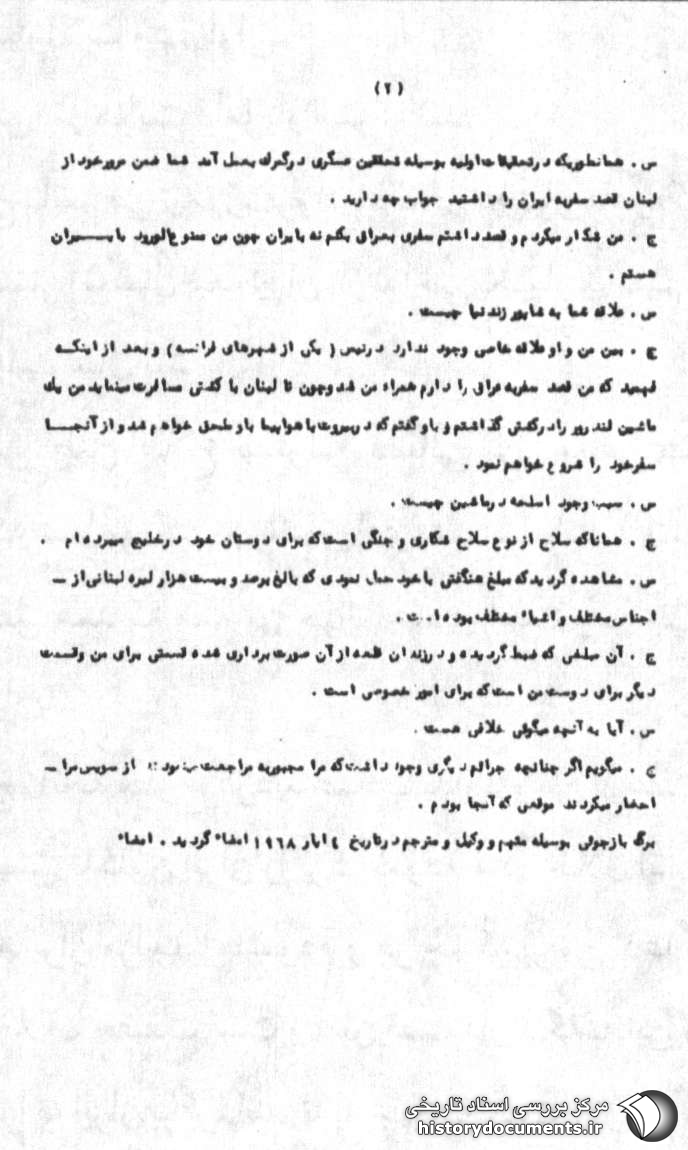 (۲)
س . همانطوریکه در تحقیقات اولیه بوسیله محققین عسگری در گمرك بعمل آمد شما ضمن مرور خود از
لبنان قصد سفر به ایران را داشتید جواب چه دارید .
ج . من شکار میکردم و قصد داشتم سفری بعراق بکنم نه بایران چون من ممنوع الورود بایـــــران
هستم .
س . علاقه شما به شاپور زندنیا چیست .
ج . بین من و او علاقه خاصی وجود ندارد در نیس ( یکی از شهرهای فرانسه ) و بعد از اینکـه
فهمید که من قصد سفر به عراق را دارم همراه من شد و چون تا لبنان با کشتی مسافرت مینماید من یك
ماشین لندرور را در کشتی گذاشتم و باو گفتم که در بیروت با هواپیما باو ملحق خواهم شد و از آنجـــا
سفر خود را شروع خواهم نمود .
س . سبب وجود اسلحه در ماشین چیست .
ج . همانا که سلاح از نوع سلاح شکاری و جنگی است که برای دوستان خود در خلیج میبرده ام .
س . مشاهده گردید که مبلغ هنگفتی با خود حمل نمودی که بالغ بر صد و بیست هزار لیره لبنانی از ــ
اجناس مختلف و اشیاء مختلف بوده است .
ج . آن مبلغی که ضبط گردیده و در زندان قلعه از آن صورت برداری شده قسمتی برای من و قسمت
دیگر برای دوست من است که برای امور خصوصی است .
س . آیا به آنچه میگوئی خلافی هست .
ج . میگویم اگر چنانچه جرائم دیگری وجود داشت که مرا مجبور به مراجعت از سویس مرا ــ
احضار میکردند موقعی که آنجا بودم .
برگ بازجوئی بوسیله متهم و وکیل و مترجم در تاریخ ٤ ایار ۱۹٦۸ امضاء گردید . امضاء
مرکز بررسی اسناد تاریخی
historydocuments.ir